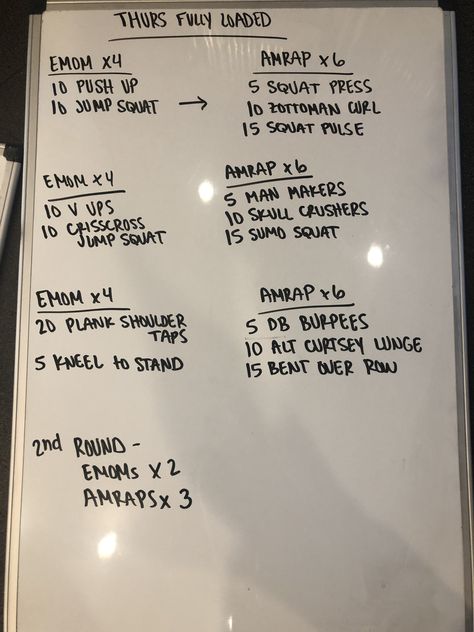 THURS FULLY LOADED
EMOM x4
10 PUSH UP
10 JUMP SQUAT →
AMRAP x6
5 SQUAT PRESS
10 ZOTTOMAN CURL
15 SQUAT PULSE
EMOM x4
10 V UPS
10 CRISSCROSS
JUMP SQUAT
AMRAP x6
5 MAN MAKERS
10 SKULL CRUSHERS
15 SUMO SQUAT
EMOM x4
20 PLANK SHOULDER
TAPS
5 KNEEL to STAND
AMRAP x6
5 DB BURPEES
10 ALT CURTSEY LUNGE
15 BENT OVER ROW
2nd ROUND -
EMOMs x 2
AMRAPS x 3